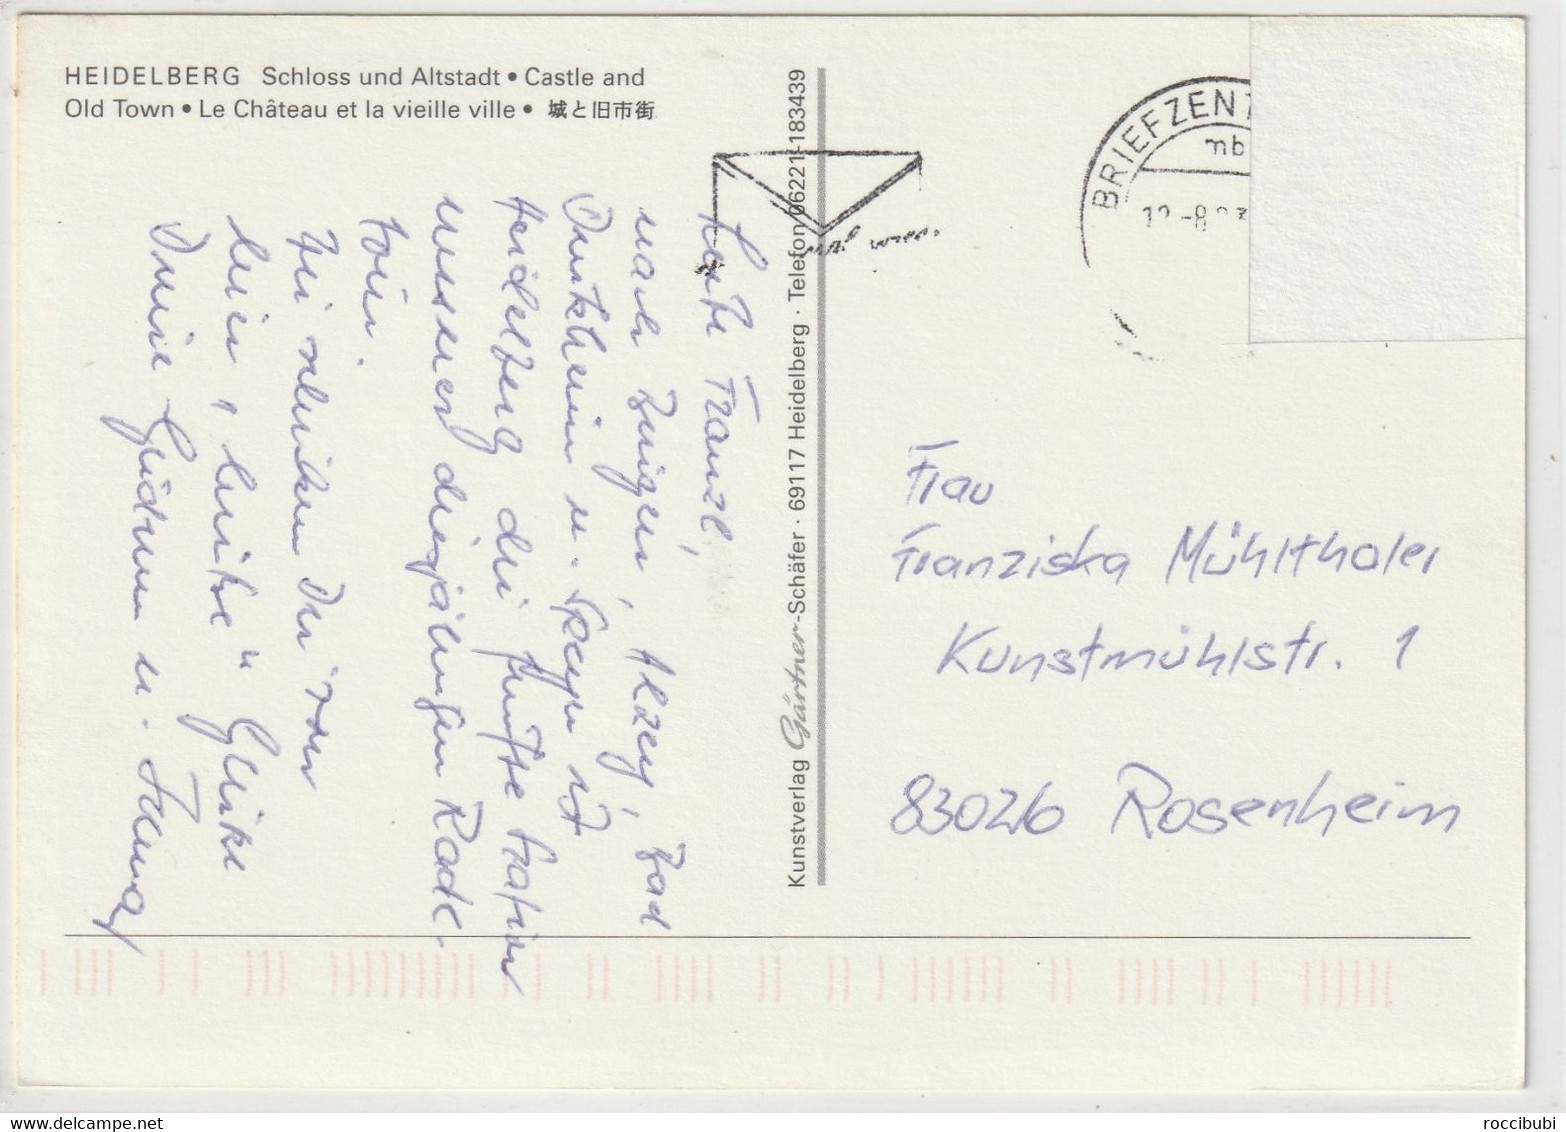 HEIDELBERG Schloss und Altstadt • Castle and
Old Town • Le Château et la vieille ville • 城と旧市街
BRIEFZEN
mb
Kunstverlag Gärtner-Schäfer · 69117 Heidelberg · Telefon 06221-183439
Franzl,
nach Bingen, Alzey, Bad
Dürkheim u. Speyer ist
Heidelberg die fünfte Station
unserer diesjährigen Rad-
tour.
Wir schicken Dir von
hier
Deine u.
Frau
Franziska Mühlthaler
Kunstmühlstr. 1
83026 Rosenheim
roccibubi